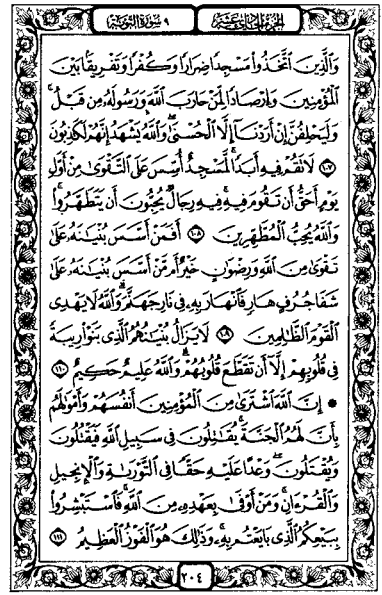 الجزء الحادي عشر
٩ سورة التوبة
وَالَّذِينَ اتَّخَذُوا مَسْجِدًا ضِرَارًا وَكُفْرًا وَتَفْرِيقًا بَيْنَ
الْمُؤْمِنِينَ وَإِرْصَادًا لِّمَنْ حَارَبَ اللَّهَ وَرَسُولَهُ مِن قَبْلُ ۚ
وَلَيَحْلِفُنَّ إِنْ أَرَدْنَا إِلَّا الْحُسْنَىٰ ۖ وَاللَّهُ يَشْهَدُ إِنَّهُمْ لَكَاذِبُونَ
١٠٧ لَا تَقُمْ فِيهِ أَبَدًا ۚ لَّمَسْجِدٌ أُسِّسَ عَلَى التَّقْوَىٰ مِنْ أَوَّلِ
يَوْمٍ أَحَقُّ أَن تَقُومَ فِيهِ ۚ فِيهِ رِجَالٌ يُحِبُّونَ أَن يَتَطَهَّرُوا ۚ
وَاللَّهُ يُحِبُّ الْمُطَّهِّرِينَ ١٠٨ أَفَمَنْ أَسَّسَ بُنْيَانَهُ عَلَىٰ
تَقْوَىٰ مِنَ اللَّهِ وَرِضْوَانٍ خَيْرٌ أَم مَّنْ أَسَّسَ بُنْيَانَهُ عَلَىٰ
شَفَا جُرُفٍ هَارٍ فَانْهَارَ بِهِ فِي نَارِ جَهَنَّمَ ۗ وَاللَّهُ لَا يَهْدِي
الْقَوْمَ الظَّالِمِينَ ١٠٩ لَا يَزَالُ بُنْيَانُهُمُ الَّذِي بَنَوْا رِيبَةً
فِي قُلُوبِهِمْ إِلَّا أَن تَقَطَّعَ قُلُوبُهُمْ ۗ وَاللَّهُ عَلِيمٌ حَكِيمٌ ١١٠
۞ إِنَّ اللَّهَ اشْتَرَىٰ مِنَ الْمُؤْمِنِينَ أَنفُسَهُمْ وَأَمْوَالَهُم
بِأَنَّ لَهُمُ الْجَنَّةَ ۚ يُقَاتِلُونَ فِي سَبِيلِ اللَّهِ فَيَقْتُلُونَ
وَيُقْتَلُونَ ۖ وَعْدًا عَلَيْهِ حَقًّا فِي التَّوْرَاةِ وَالْإِنجِيلِ
وَالْقُرْءَانِ ۚ وَمَنْ أَوْفَىٰ بِعَهْدِهِ مِنَ اللَّهِ ۚ فَاسْتَبْشِرُوا
بِبَيْعِكُمُ الَّذِي بَايَعْتُم بِهِ ۚ وَذَٰلِكَ هُوَ الْفَوْزُ الْعَظِيمُ ١١١
٢٠٤